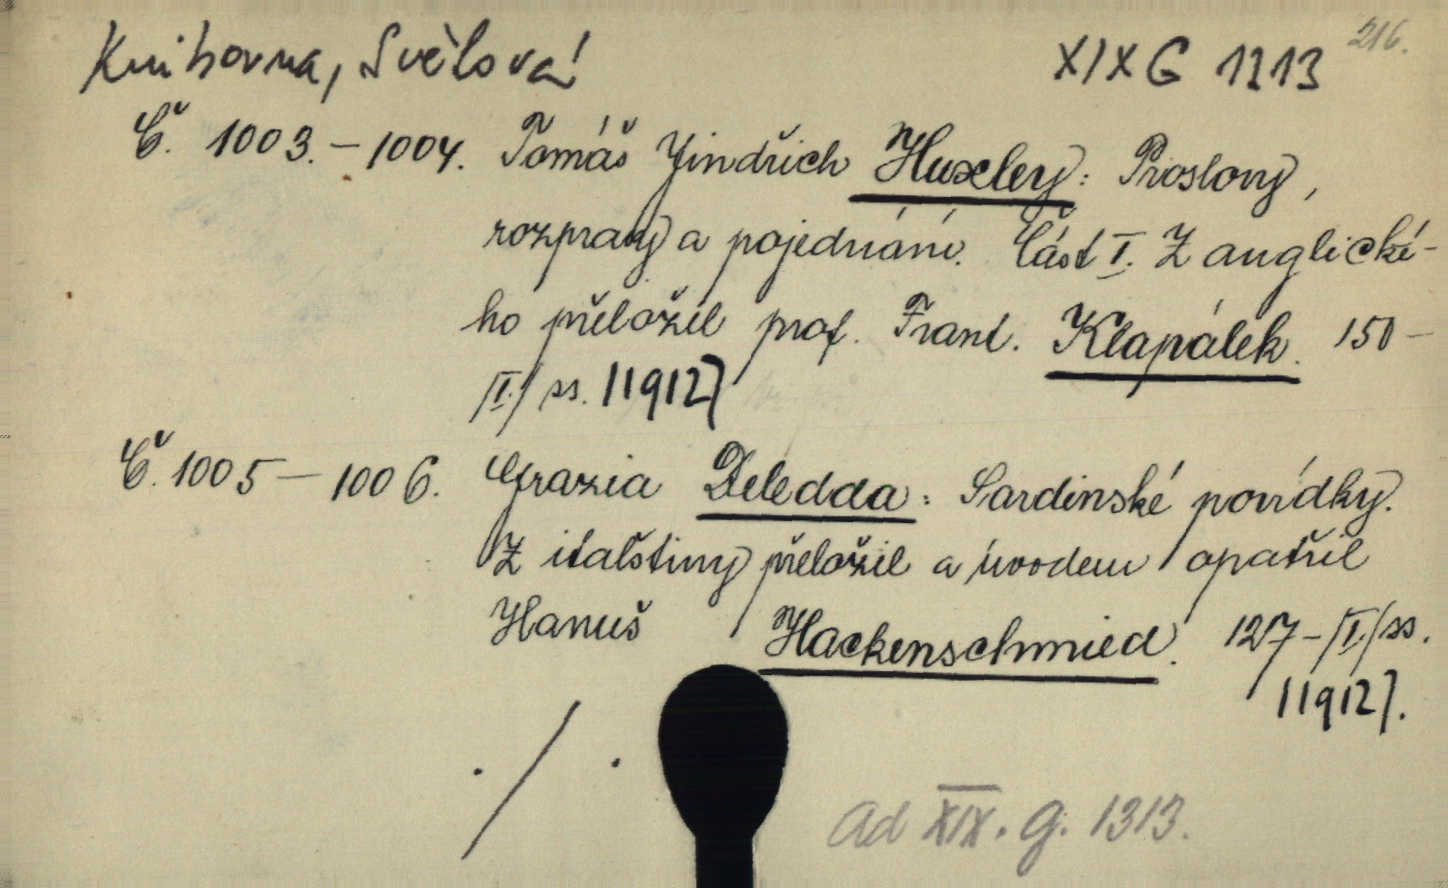 Knihovna, Světová XIX G 1213 216.
Č. 1003.–1004. Tomáš Jindřich Huxley: Proslovy,
rozpravy a pojednání. Část I. Z anglické-
ho přeložil prof. Frant. Klapálek. 150–
/I./ ss. [1912]
Č. 1005–1006. Grazia Deledda: Sardinské povídky.
Z italštiny přeložil a úvodem opatřil
Hanuš Hackenschmied. 127–/I./ ss.
[1912].
./.
Ad XIX. G. 1313.